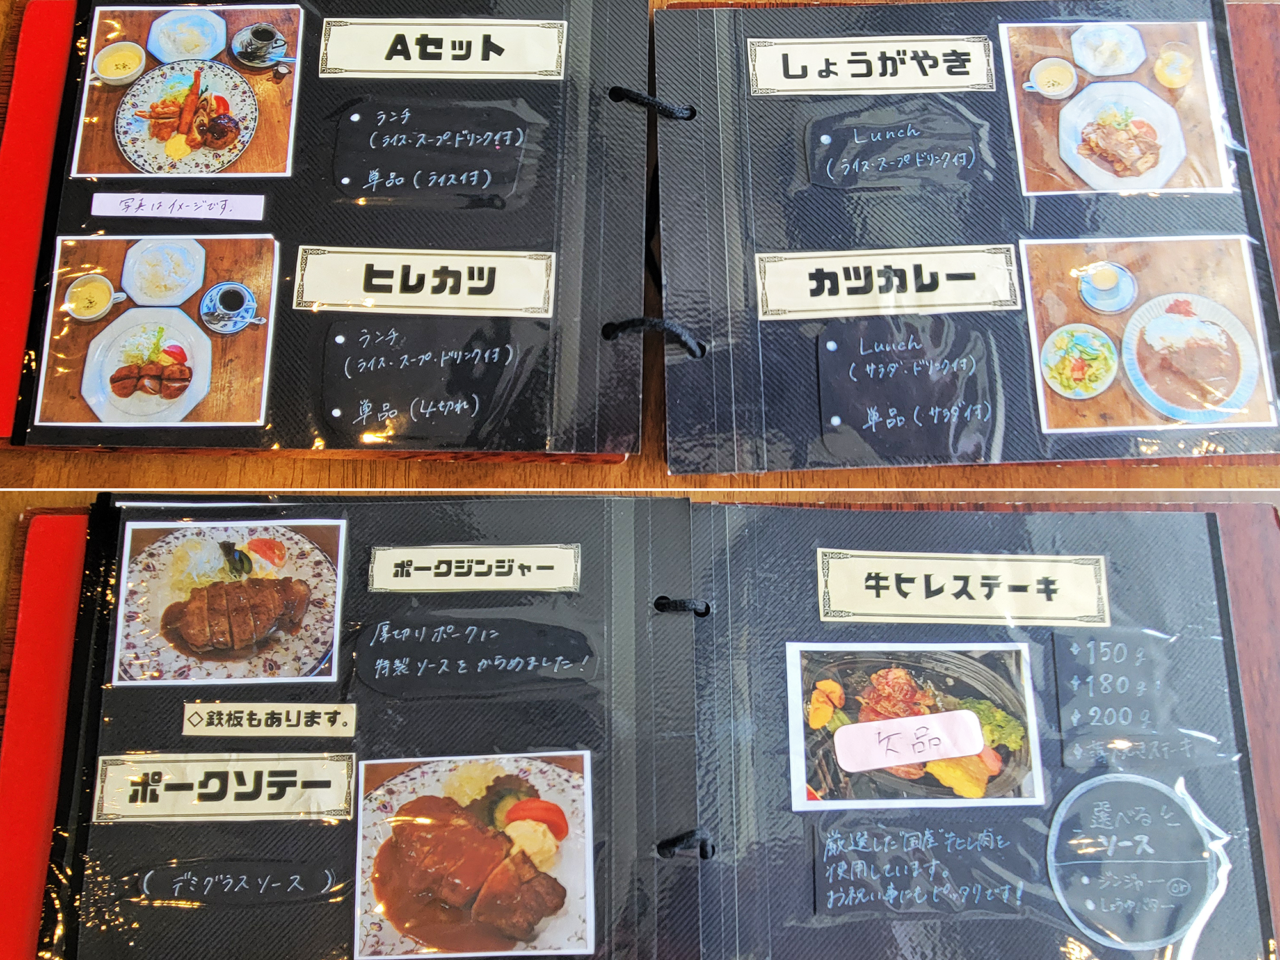 Aセット
・ランチ
(ライス・スープ・ドリンク付)
・単品(ライス付)
写真はイメージです。
ヒレカツ
・ランチ
(ライス・スープ・ドリンク付)
・単品(4切れ)
しょうがやき
・Lunch
(ライス・スープ・ドリンク付)
カツカレー
・Lunch
(サラダ・ドリンク付)
・単品(サラダ付)
ポークジンジャー
厚切りポークに
特製ソースをからめました!
◇鉄板もあります。
ポークソテー
(デミグラスソース)
牛ヒレステーキ
150g
180g
200g
ステーキ
欠品
厳選した"国産"牛ヒレ肉を
使用しています。
お祝い事にもピッタリです!
選べる
ソース
・ジンジャー or
・しょうゆバター